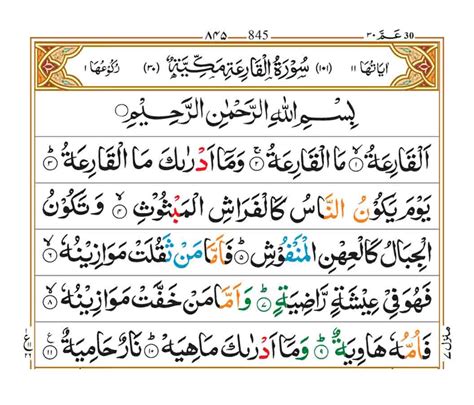 ۸۴۵ 845 عَمّ ۳۰ 30
اٰيَاتُهَا ۱۱ (۱۰۱) سُوْرَةُ الْقَارِعَةِ مَكِّيَّةٌ (۳۰) رُكُوْعُهَا ۱
بِسْمِ اللّٰهِ الرَّحْمٰنِ الرَّحِيْمِ
اَلْقَارِعَةُ ۙ۝۱ مَا الْقَارِعَةُ ۚ۝۲ وَمَاۤ اَدْرٰىكَ مَا الْقَارِعَةُ ؕ۝۳
يَوْمَ يَكُوْنُ النَّاسُ كَالْفَرَاشِ الْمَبْثُوْثِ ۙ۝۴ وَ تَكُوْنُ
الْجِبَالُ كَالْعِهْنِ الْمَنْفُوْشِ ؕ۝۵ فَاَمَّا مَنْ ثَقُلَتْ مَوَازِيْنُهٗ ۙ۝۶
فَهُوَ فِيْ عِيْشَةٍ رَّاضِيَةٍ ؕ۝۷ وَاَمَّا مَنْ خَفَّتْ مَوَازِيْنُهٗ ۙ۝۸
فَاُمُّهٗ هَاوِيَةٌ ؕ۝۹ وَمَاۤ اَدْرٰىكَ مَا هِيَهْ ؕ۝۱۰ نَارٌ حَامِيَةٌ ۝۱۱
منزل ۷